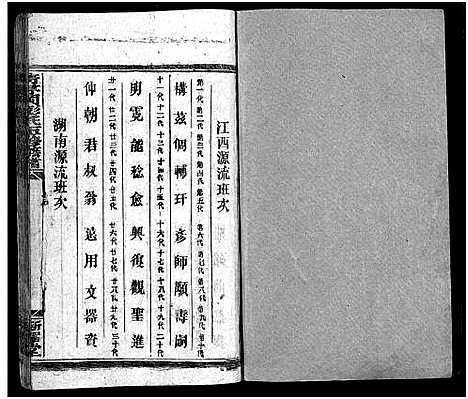 江西源流班次
第一代 第二代 第三代 第四代 第五代 第六代 第七代 第八代 第九代 第十代
構 茲 倜 輔 玕 彥 師 顯 壽 嗣
十一代 十二代 十三代 十四代 十五代 十六代 十七代 十八代 十九代 二十代
明 寛 能 稔 愈 興 復 觀 聖 進
廿一代 廿二代 廿三代 廿四代 廿五代 廿六代 廿七代 廿八代 廿九代 三十代
仲 朝 君 叔 翁 遠 用 文 器 資
湖南源流班次